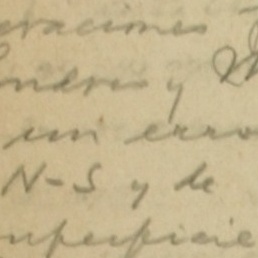 eraciones
ondres y M
un erro
N-S y de
uperficie